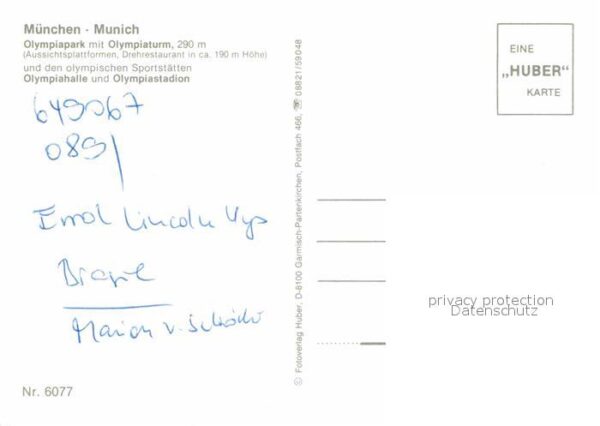 München - Munich
Olympiapark mit Olympiaturm, 290 m
(Aussichtsplattformen, Drehrestaurant in ca. 190 m Höhe)
und den olympischen Sportstätten
Olympiahalle und Olympiastadion
649067
089/
Lincoln
Marion v.
Nr. 6077
© Fotoverlag Huber, D-8100 Garmisch-Partenkirchen, Postfach 466, ☎ 08821/59048
EINE
„HUBER"
KARTE
privacy protection
Datenschutz